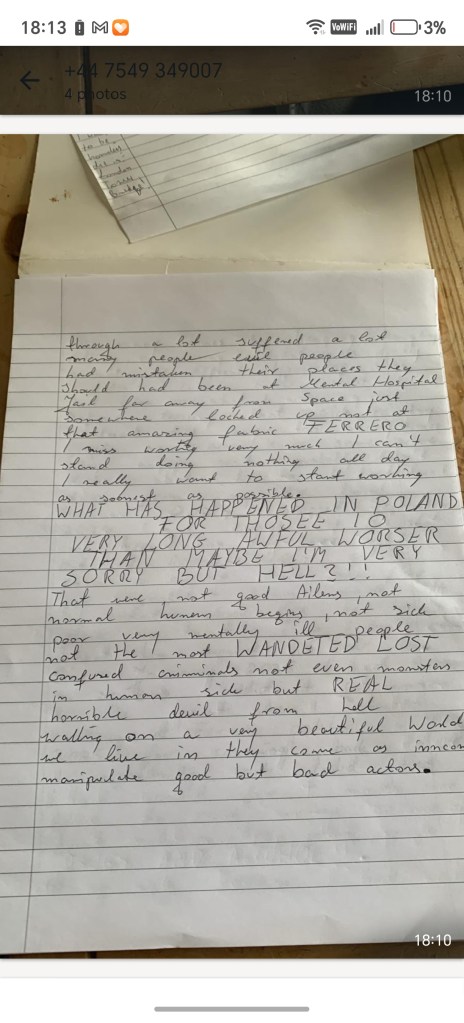 18:13
VoWiFi
3%
+44 7549 349007
4 photos
18:10
to be
through a lot suffered a lot
many people evil people
had mistaken their places they
should had been at Mental Hospital
Jail far away from Space just
somewhere locked up not at
that amazing fabric FERRERO
I miss working very much I can't
stand doing nothing all day
I really want to start working
as soonest as possible.
WHAT HAS HAPPENED IN POLAND
FOR THOSEE 10
VERY LONG AWFUL WORSER
THAN MAYBE I'M VERY
SORRY BUT HELL?!!
That were not good Ailens, not
normal humen begins, not sick
poor very mentally ill people
not the most WANDETED LOST
confused criminals not even monsters
in human side but REAL
horrible devil from hell
walking on a very beautiful World
we live in they come as
manipulate good but bad actors.
18:10